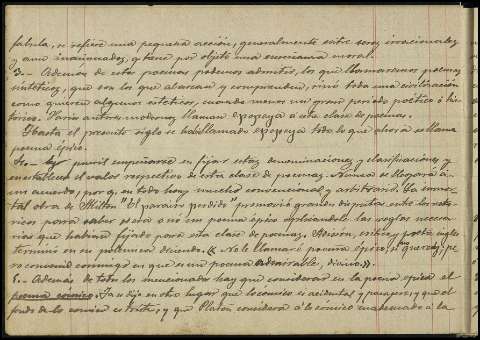 fabula, se refiere una pequeña acción, generalmente entre seres irracionales
y aun inanimados, y tiene por objeto una enseñanza moral.
3.- Además de estos poemas podemos admitir, los que llamaremos poemas
sintéticos, que son los que abarcan y comprenden, sinó toda una civilización
como quieren algunos estéticos, cuando menos un gran período político ó his-
tórico. Varios autores modernos llaman epopeya á esta clase de poemas.
Hasta el presente siglo se ha llamado epopeya todo lo que ahora se llama
poema épico.
4.- Es pueril empeñarse en fijar estas denominaciones y clasificaciones y
en establecer el valor respectivo de esta clase de poemas. Nunca se llegará á
un acuerdo, por q. en todo hay mucho convencional y arbitrario. La inmor-
tal obra de Milton "El paraiso perdido" promovió grandes disputas entre los retó-
ricos para saber si era ó nó un poema épico aplicándole las reglas necesa-
rias que habian fijado para esta clase de poemas. Adisson, crítico y poeta inglés
terminó en su polémica diciendo: « No le llameis poema épico, si no quereis; pe-
ro convenid conmigo en que es un poema admirable, divino.».
5.- Además de todos los mencionados hay que considerar en la poesia épica el
poema cómico. Ya se dijo en otro lugar que lo cómico es accidental y pasajero, y que el
fondo de lo cómico es triste, y que Platón considera á lo cómico encaminado á la